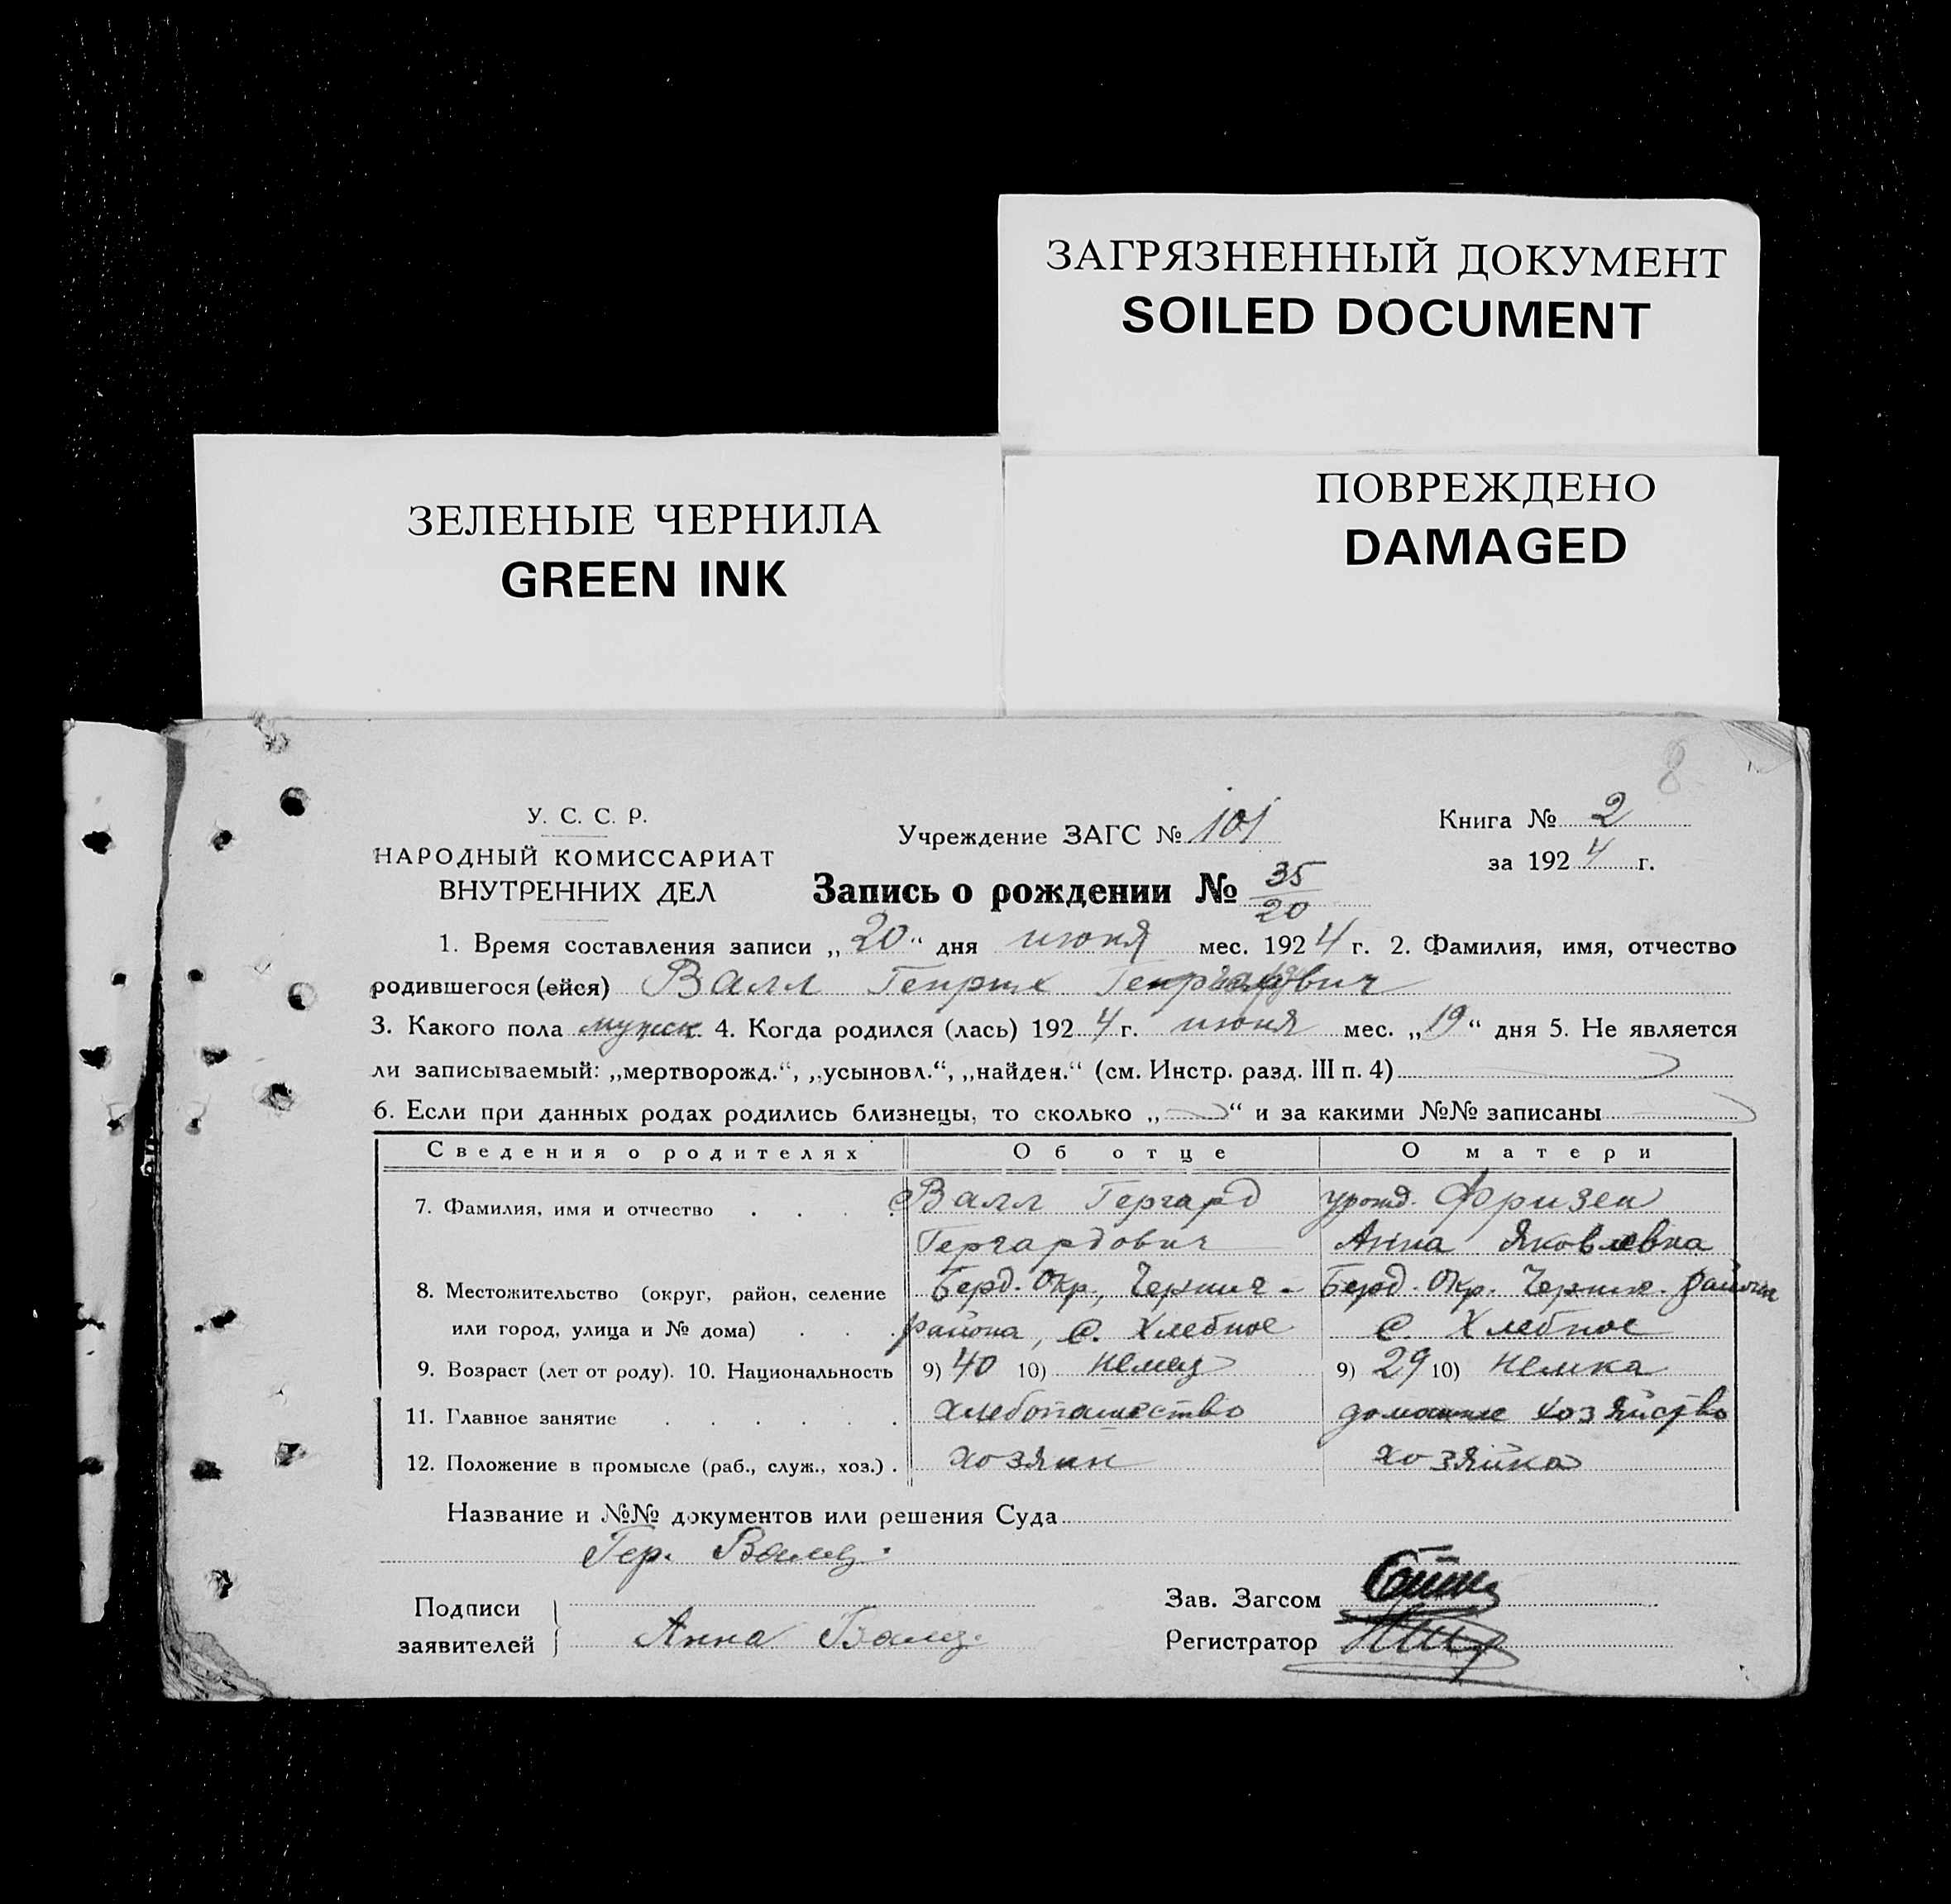 ЗАГРЯЗНЕННЫЙ ДОКУМЕНТ
SOILED DOCUMENT
ЗЕЛЕНЫЕ ЧЕРНИЛА
GREEN INK
ПОВРЕЖДЕНО
DAMAGED
8
У. С. С. Р.
НАРОДНЫЙ КОМИССАРИАТ
ВНУТРЕННИХ ДЕЛ
Учреждение ЗАГС № 101
Книга № 2
за 1924 г.
Запись о рождении № 35/20
1. Время составления записи „20“ дня июня мес. 1924 г. 2. Фамилия, имя, отчество
родившегося (ейся) Валл Генрих
3. Какого пола мужск. 4. Когда родился (лась) 1924 г. июня мес. „19“ дня 5. Не является
ли записываемый: „мертворожд.“, „усыновл.“, „найден.“ (см. Инстр. разд. III п. 4)
6. Если при данных родах родились близнецы, то сколько „ “ и за какими №№ записаны
Сведения о родителях Об отце О матери
7. Фамилия, имя и отчество Валл Гергард урожд. Фризен
Гергардович Анна Яковлевна
8. Местожительство (округ, район, селение Берд. Окр., Берд. Окр. района
или город, улица и № дома) района, с. Хлебное с. Хлебное
9. Возраст (лет от роду). 10. Национальность 9) 40 10) немец 9) 29 10) немка
11. Главное занятие хлебопашество домашнее хозяйство
12. Положение в промысле (раб., служ., хоз.) хозяин хозяйка
Название и №№ документов или решения Суда
Гер.
Подписи
заявителей
Анна
Зав. Загсом
Регистратор